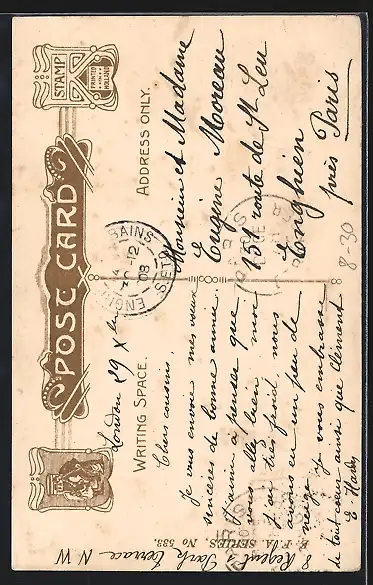 POST CARD
STAMP
PRINTED
IN
HOLLAND
WRITING SPACE.
ADDRESS ONLY.
London 29 Xbre
Chers cousins,
je vous envoie mes vœux
sincères de bonne année
j'aime à penser que
vous allez bien moi
j'ai très froid nous
avons eu un peu de
neige je vous embrasse
de tout cœur ainsi que Clément
E Hardy
8 Regent's Park terrace N W
E. F. A. SERIES. No 533.
Monsieur et Madame
Eugène Moreau
151 route de St Leu
Enghien
près Paris
8-30
ENGHIEN BAINS
-12
08
S.ET O.